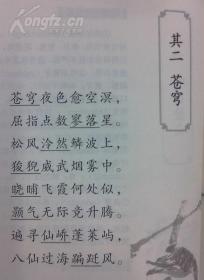 其二 苍穹
苍穹夜色愈空溟，
屈指点数寥落星。
松风泠然鳞波上，
狻猊威武烟雾中。
晓晡飞霞何处似，
颢气无际竞升腾。
遍寻仙峤蓬莱屿，
八仙过海蹁跹风。